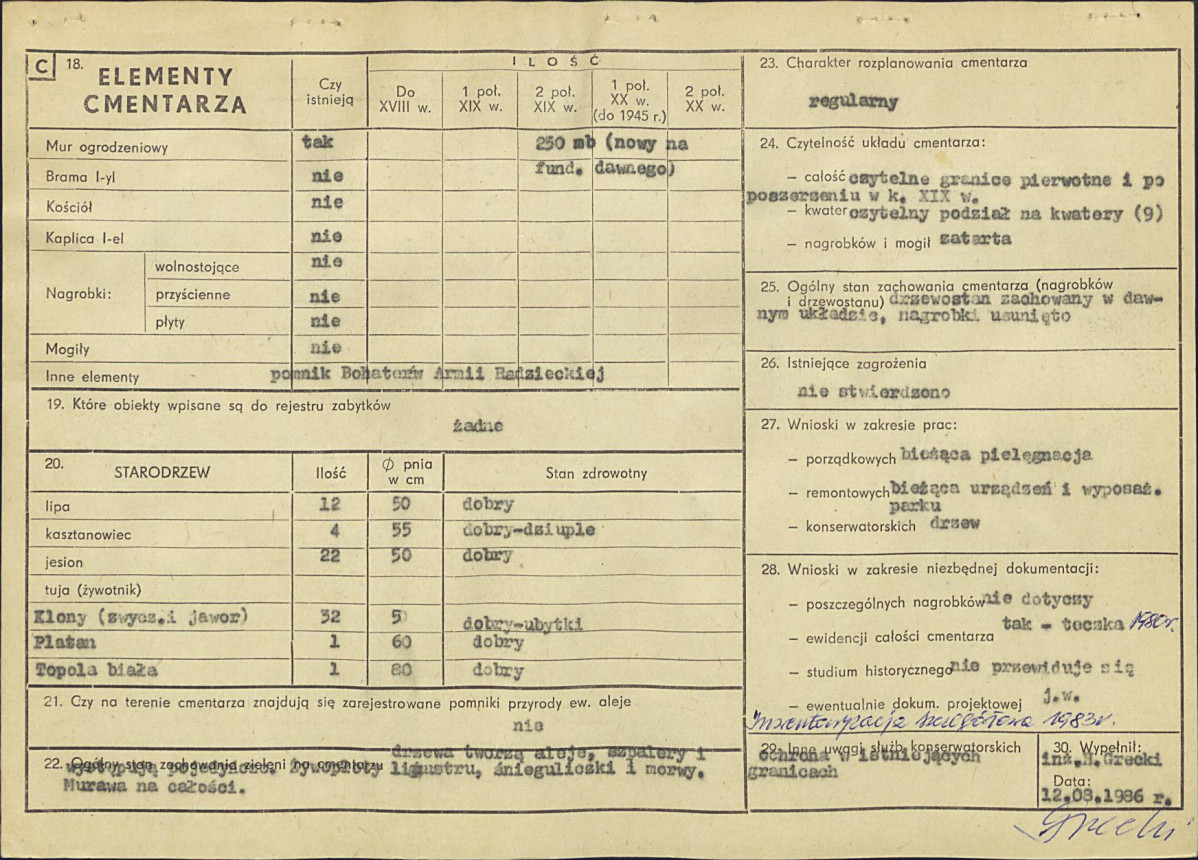 C 18. ELEMENTY CMENTARZA
Czy istnieją
ILOŚĆ
Do XVIII w.
1 poł. XIX w.
2 poł. XIX w.
1 poł. XX w. (do 1945 r.)
2 poł. XX w.
Mur ogrodzeniowy tak 250 mb (nowy na
fund. dawnego)
Brama I-yl nie
Kościół nie
Kaplica I-el nie
Nagrobki: wolnostojące nie
przyścienne nie
płyty nie
Mogiły nie
Inne elementy pomnik Bohaterów Armii Radzieckiej
19. Które obiekty wpisane są do rejestru zabytków
żadne
20. STARODRZEW Ilość Ø pnia w cm Stan zdrowotny
lipa 12 50 dobry
kasztanowiec 4 55 dobry-dziuple
jesion 22 50 dobry
tuja (żywotnik)
Klony (zwycz.i jawor) 32 5 dobry-ubytki
Platan 1 60 dobry
Topola biała 1 80 dobry
21. Czy na terenie cmentarza znajdują się zarejestrowane pomniki przyrody ew. aleje
nie
22. Ogólny stan zachowania zieleni na cmentarzu
drzewa tworzą aleje, szpalery i
występują pojedyńczo. Żywopłoty ligustru, śnieguliczki i morwy.
Murawa na całości.
23. Charakter rozplanowania cmentarza
regularny
24. Czytelność układu cmentarza:
– całość czytelne granice pierwotne i po
poszerzeniu w k. XIX w.
– kwater czytelny podział na kwatery (9)
– nagrobków i mogił zatarta
25. Ogólny stan zachowania cmentarza (nagrobków
i drzewostanu) drzewostan zachowany w daw-
nym układzie, nagrobki usunięto
26. Istniejące zagrożenia
nie stwierdzono
27. Wnioski w zakresie prac:
– porządkowych bieżąca pielęgnacja
– remontowych bieżąca urządzeń i wyposaż.
parku
– konserwatorskich drzew
28. Wnioski w zakresie niezbędnej dokumentacji:
– poszczególnych nagrobków nie dotyczy
tak - teczka 1980r.
– ewidencji całości cmentarza
– studium historycznego nie przewiduje się
– ewentualnie dokum. projektowej j.w.
Inwentaryzacja szczegółowa 1983r.
29. Inne uwagi służb konserwatorskich
ochrona w istniejących
granicach
30. Wypełnił:
inż.N.Grecki
Data:
12.08.1986 r.
Grecki